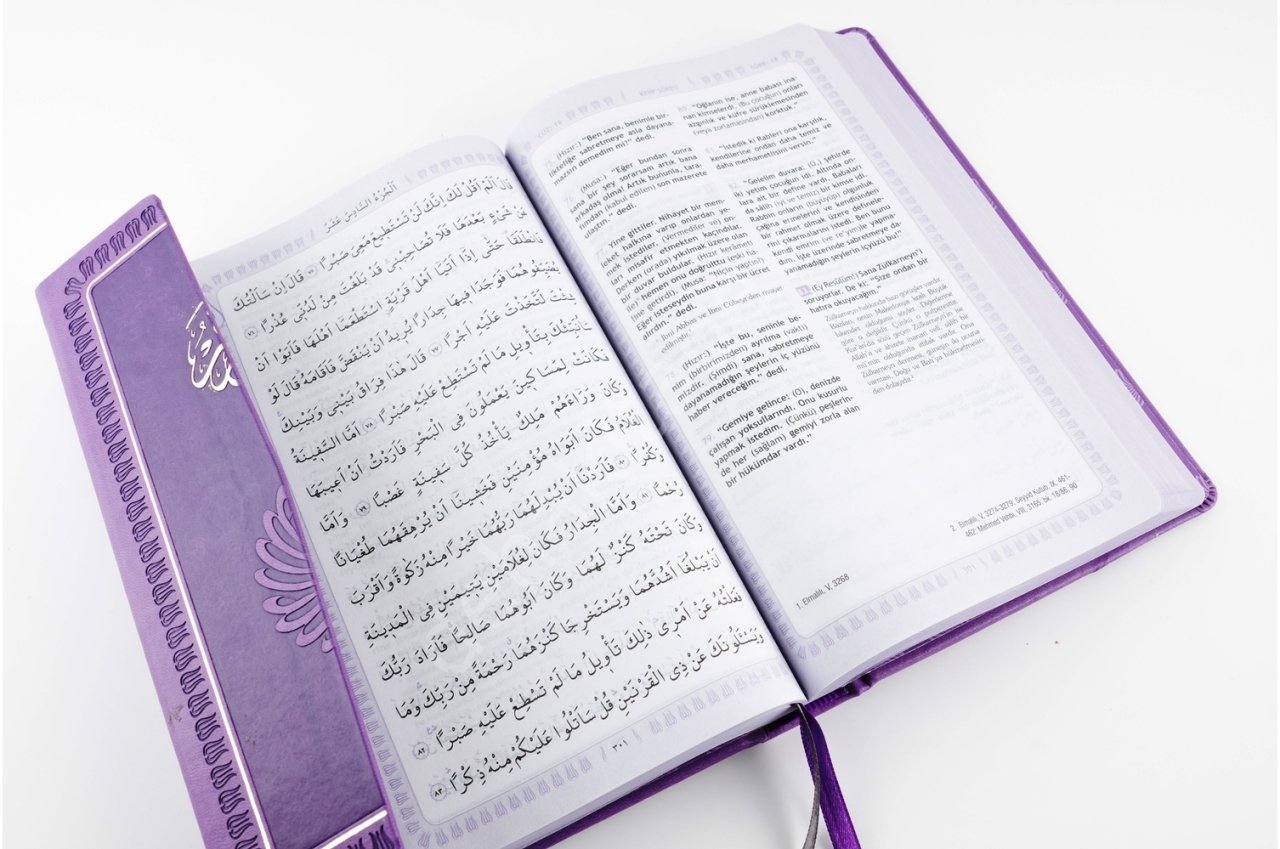 اَلْجُزْءُ السَّادِسَ عَشَرَ
قَالَ اَلَمْ اَقُلْ لَكَ اِنَّكَ لَنْ تَسْتَطٖيعَ مَعِىَ صَبْرًا ٧٥ قَالَ اِنْ سَاَلْتُكَ
عَنْ شَىْءٍ بَعْدَهَا فَلَا تُصَاحِبْنٖى قَدْ بَلَغْتَ مِنْ لَدُنّٖى عُذْرًا ٧٦
فَانْطَلَقَا حَتّٰى اِذَا اَتَيَا اَهْلَ قَرْيَةٍ اسْتَطْعَمَا اَهْلَهَا فَاَبَوْا اَنْ
يُضَيِّفُوهُمَا فَوَجَدَا فٖيهَا جِدَارًا يُرٖيدُ اَنْ يَنْقَضَّ فَاَقَامَهُ قَالَ لَوْ
شِئْتَ لَتَّخَذْتَ عَلَيْهِ اَجْرًا ٧٧ قَالَ هٰذَا فِرَاقُ بَيْنٖى وَبَيْنِكَ
سَاُنَبِّئُكَ بِتَاْوٖيلِ مَا لَمْ تَسْتَطِعْ عَلَيْهِ صَبْرًا ٧٨ اَمَّا السَّفٖينَةُ
فَكَانَتْ لِمَسَاكٖينَ يَعْمَلُونَ فِى الْبَحْرِ فَاَرَدْتُ اَنْ اَعٖيبَهَا
وَكَانَ وَرَاءَهُمْ مَلِكٌ يَاْخُذُ كُلَّ سَفٖينَةٍ غَصْبًا ٧٩ وَاَمَّا
الْغُلَامُ فَكَانَ اَبَوَاهُ مُؤْمِنَيْنِ فَخَشٖينَا اَنْ يُرْهِقَهُمَا طُغْيَانًا
وَكُفْرًا ٨٠ فَاَرَدْنَا اَنْ يُبْدِلَهُمَا رَبُّهُمَا خَيْرًا مِنْهُ زَكٰوةً وَاَقْرَبَ
رُحْمًا ٨١ وَاَمَّا الْجِدَارُ فَكَانَ لِغُلَامَيْنِ يَتٖيمَيْنِ فِى الْمَدٖينَةِ
وَكَانَ تَحْتَهُ كَنْزٌ لَهُمَا وَكَانَ اَبُوهُمَا صَالِحًا فَاَرَادَ رَبُّكَ
اَنْ يَبْلُغَا اَشُدَّهُمَا وَيَسْتَخْرِجَا كَنْزَهُمَا رَحْمَةً مِنْ رَبِّكَ وَمَا
فَعَلْتُهُ عَنْ اَمْرٖى ذٰلِكَ تَاْوٖيلُ مَا لَمْ تَسْطِعْ عَلَيْهِ صَبْرًا ٨٢
وَيَسْـَٔلُونَكَ عَنْ ذِى الْقَرْنَيْنِ قُلْ سَاَتْلُوا عَلَيْكُمْ مِنْهُ ذِكْرًا ٨٣
٣٠١
KEHF SÛRESİ
75. (Hızır:) “Ben sana, benimle bir-
likteliğe sabretmeye asla dayana-
mazsın demedim mi?” dedi.
76. (Musa:) “Eğer bundan sonra
sana bir şey sorarsam artık bana
arkadaş olma! Artık bununla, tara-
fımdan (kabul edilen) son mazerete
ulaştın.” dedi.
77. Yine gittiler. Nihayet bir mem-
leket halkına varıp onlardan ye-
mek istediler. (Vermediler ve) on-
ları misafir etmekten kaçındılar.
Derken (orada) yıkılmak üzere olan
bir duvar buldular. (Hızır kerâmeti
ile) hemen onu doğrulttu (eski ha-
line getirdi). (Musa: “Niçin yaptın?)
Eğer isteseydin buna karşı bir ücret
alırdın.” dedi.
78. (Hızır:) “İşte bu, seninle be-
nim (birbirimizden) ayrılma (vakti)
mizdir. (Şimdi) sana, sabretmeye
dayanamadığın şeylerin iç yüzünü
haber vereceğim.” dedi.
79. “Gemiye gelince: (O), denizde
çalışan yoksullarındı. Onu kusurlu
yapmak istedim. (Çünkü) peşlerin-
de her (sağlam) gemiyi zorla alan
bir hükümdar vardı.”
80. “Oğlanın ise, anne babası ina-
nan kimselerdi. (Bu çocuğun) onları
azgınlık ve küfre sürüklemesinden
(veya zorlamasından) korktuk.”
81. “İstedik ki Rableri ona karşılık,
kendilerine ondan daha temiz ve
daha merhametlisini versin.”
82. “Gelelim duvara: (O,) şehirde
iki yetim çocuğun idi. Altında on-
lara ait bir define vardı. Babaları
da sâlih (iyi ve temiz) bir kimse idi.
Rabbin onların (büyüyüp) olgunluk
çağına ermelerini ve kendisinden
bir rahmet olmak üzere definele-
rini çıkarmalarını istedi. Ben bunu
kendi emrim (ve re’yim)le yapma-
dım. İşte üzerinde sabretmeye da-
yanamadığın şeylerin içyüzü bu!”
83. (Ey Resûlüm!) Sana Zülkarneyn’i
soruyorlar. De ki: “Size ondan bir
hatıra okuyacağım.”
Zülkarneyn hakkında bazı görüşler vardır.
1. Elmalılı, V, 3268
2. Elmalılı, V, 3274-3279; Seyyid Kutub, IX, 461-
462; Mehmed Vehbi, VIII, 3165; bk. 18/86, 90
301